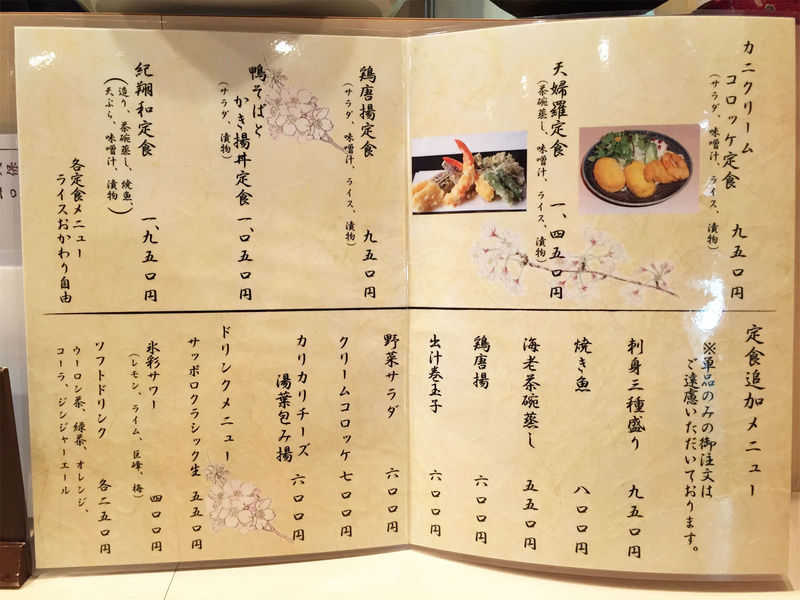 カニクリーム
コロッケ定食
(サラダ、味噌汁、ライス、漬物)
九五〇円
天婦羅定食
(茶碗蒸し、味噌汁、ライス、漬物)
一、四五〇円
鶏唐揚定食
(サラダ、味噌汁、ライス、漬物)
九五〇円
鴨そばと
かき揚丼定食
(サラダ、漬物)
一、〇五〇円
紀翔和定食
(造り、茶碗蒸し、焼魚、
天ぷら、味噌汁、漬物)
一、九五〇円
各定食メニュー
ライスおかわり自由
定食追加メニュー
※単品のみの御注文は
ご遠慮いただいております。
刺身三種盛り 九五〇円
焼き魚 八〇〇円
海老茶碗蒸し 五五〇円
鶏唐揚 六〇〇円
出汁巻玉子 六〇〇円
野菜サラダ 六〇〇円
クリームコロッケ 七〇〇円
カリカリチーズ
湯葉包み揚 六〇〇円
ドリンクメニュー
サッポロクラシック生 五五〇円
氷彩サワー 四〇〇円
(レモン、ライム、巨峰、梅)
ソフトドリンク 各二五〇円
ウーロン茶、緑茶、オレンジ、
コーラ、ジンジャーエール